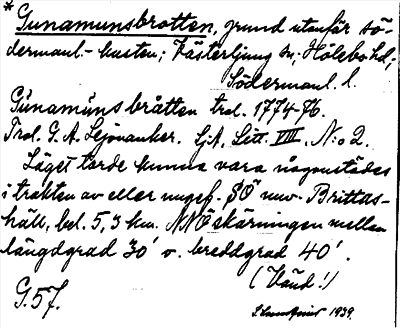 * Gunamunsbrotten, grund utanför sö-
dermanl.-kusten; Västerljung sn. Hölebo hd,
Södermanl. l.
Gunamünsbråtten trol. 1774-76.
Trol. G. A. Leijonanker. LjA, Litt. VIII. N:o 2.
Läget torde kunna vara någonstädes
i trakten av eller ungef. SÖ nuv. Brittas-
häll, bel. 5,3 km. NNÖ skärningen mellan
längdgrad 30' o. breddgrad 40'.
(Vänd!)
G. 57.
1939.